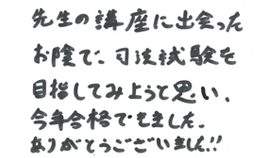 先生の講座に出会った
お陰で、司法試験を
目指してみようと思い、
今年合格できました。
ありがとうございました!!